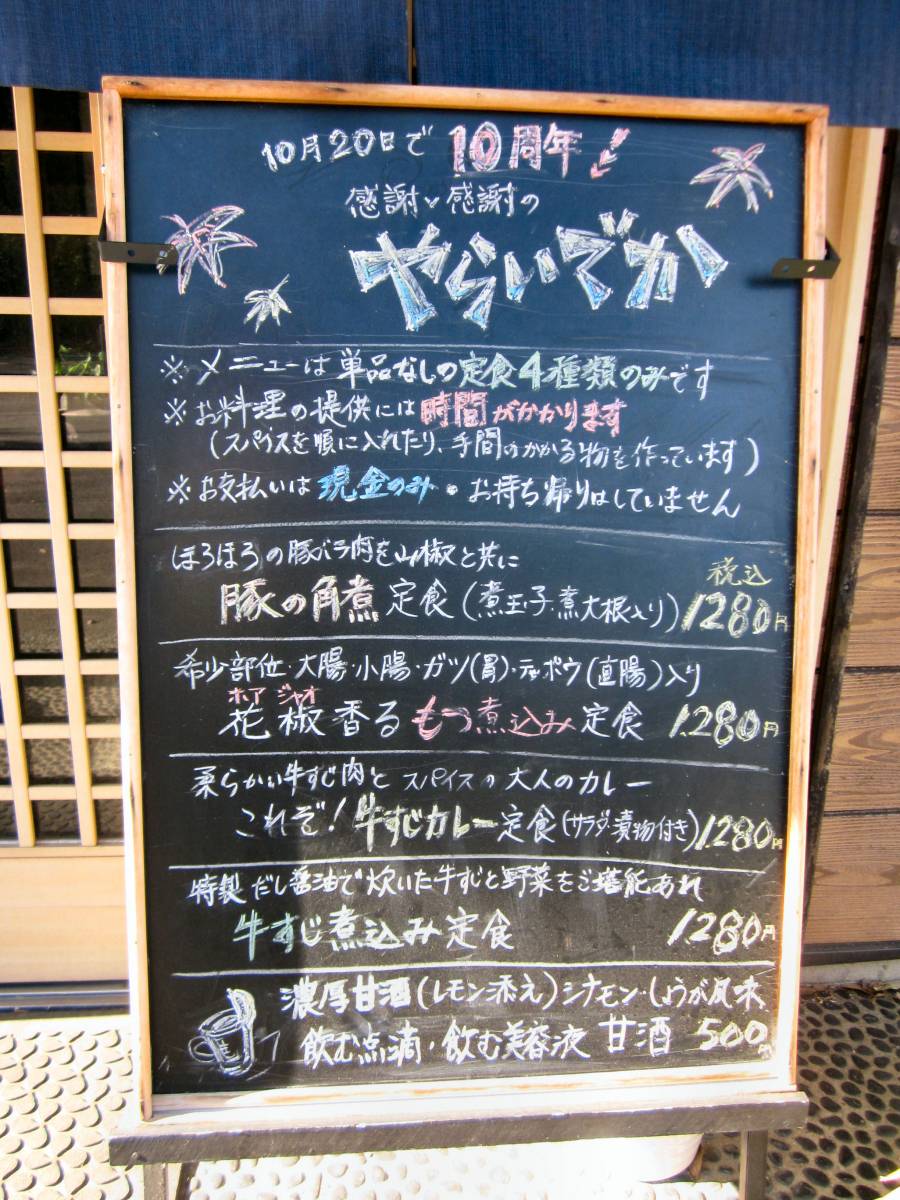 10月20日で10周年!!
感謝と感謝の
やらいでか
※メニューは単品なしの定食4種類のみです
※お料理の提供には時間がかかります
(スパイスを順に入れたり、手間のかかる物を作っています)
※お支払いは現金のみ・お持ち帰りはしていません
ほろほろの豚バラ肉を山椒と共に
税込
豚の角煮定食(煮玉子・煮大根入り)1280円
希少部位・大腸・小腸・ガツ(胃)・テッポウ(直腸)入り
ホア ジャオ
花椒香るもつ煮込み定食 1.280円
柔らかい牛すじ肉とスパイスの大人のカレー
これぞ!牛すじカレー定食(サラダ・漬物付き)1280円
特製だし醤油で炊いた牛すじと野菜をご堪能あれ
牛すじ煮込み定食 1280円
濃厚甘酒(レモン添え)シナモン・しょうが風味
飲む点滴・飲む美容液 甘酒 500円